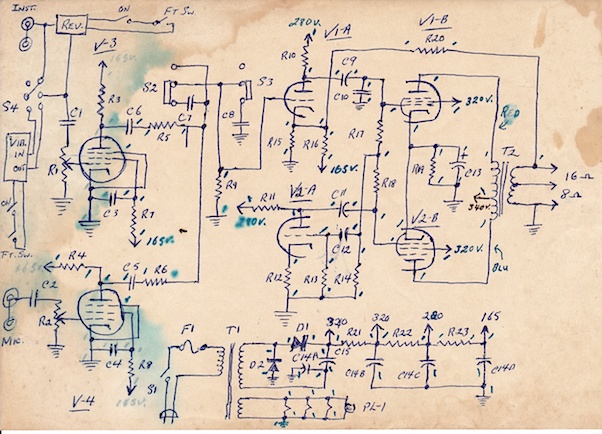 INST.
REV.
ON
FT. SW.
V-3
165V.
280V.
V1-A
V1-B
R20
S4
C1
R3
C6
R5
C7
S2
S3
C8
R10
C9
C10
R17
320V.
RED
T2
VIB.
IN
OUT
R1
C3
R7
165V.
R9
R15
R16
165V.
R18
C13
340V.
16Ω
8Ω
ON
FT. SW.
R11
280V.
V2-A
C11
C12
V2-B
320V.
BLU
165V.
R4
C5
R6
C2
R2
MIC.
C4
R8
165V.
V-4
R12
R13
R14
S1
F1
T1
D1
D2
C14A
C15
320
R21
320
R22
280
R23
165
C14B
C14C
C14D
PL-1